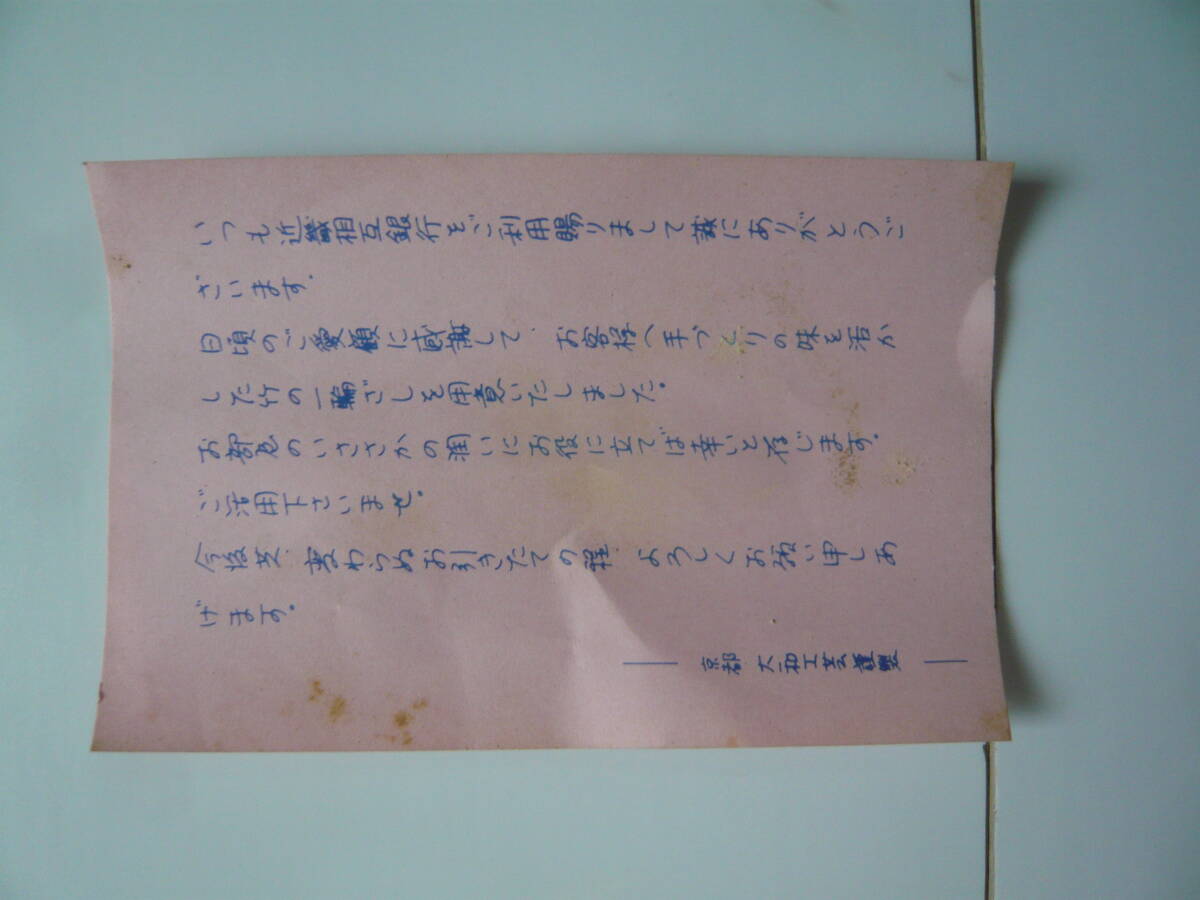 いつも近畿相互銀行をご利用賜りまして誠にありがとうご
ざいます.
日頃のご愛顧に感謝して、お客様へ手づくりの味を活か
した竹の一輪ざしを用意いたしました。
お部屋のいささかの潤いにお役に立てば幸いと存じます。
ご活用下さいませ。
今後共 変わらぬお引きたての程 よろしくお願い申しあ
げます。
― 京都 大和工芸謹製 ―